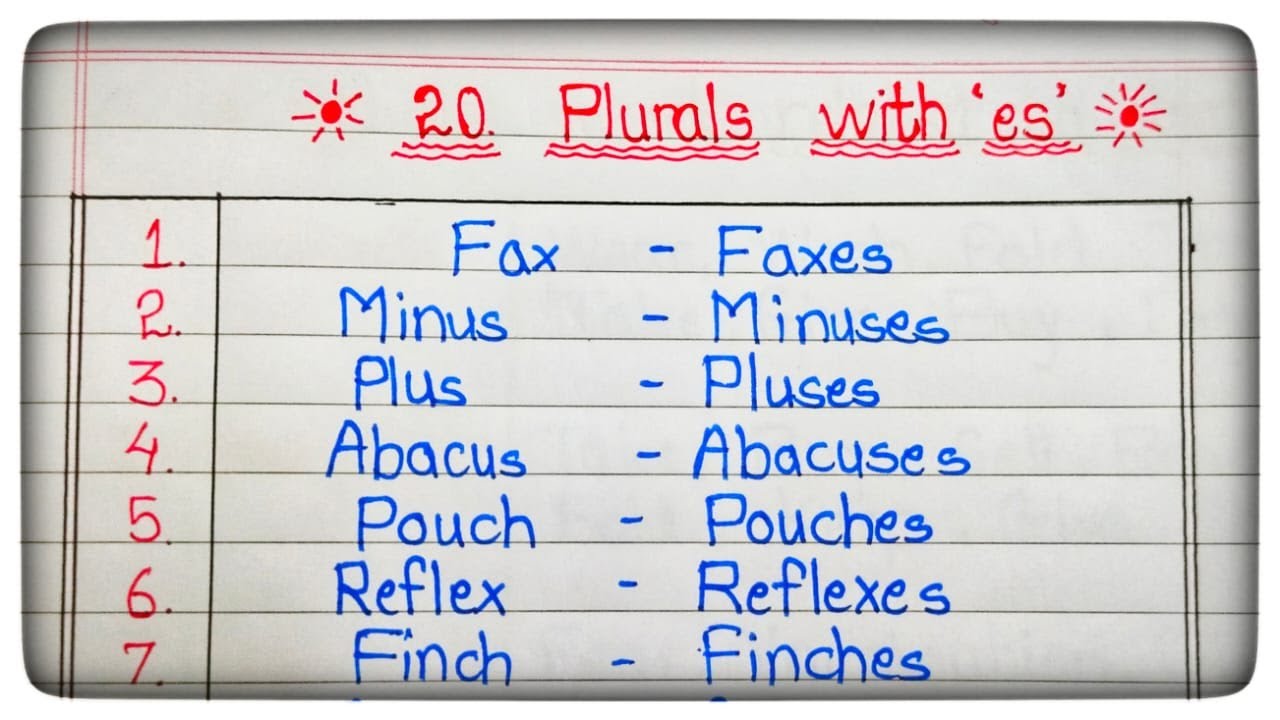 20. Plurals with 'es'
1. Fax - Faxes
2. Minus - Minuses
3. Plus - Pluses
4. Abacus - Abacuses
5. Pouch - Pouches
6. Reflex - Reflexes
7. Finch - Finches